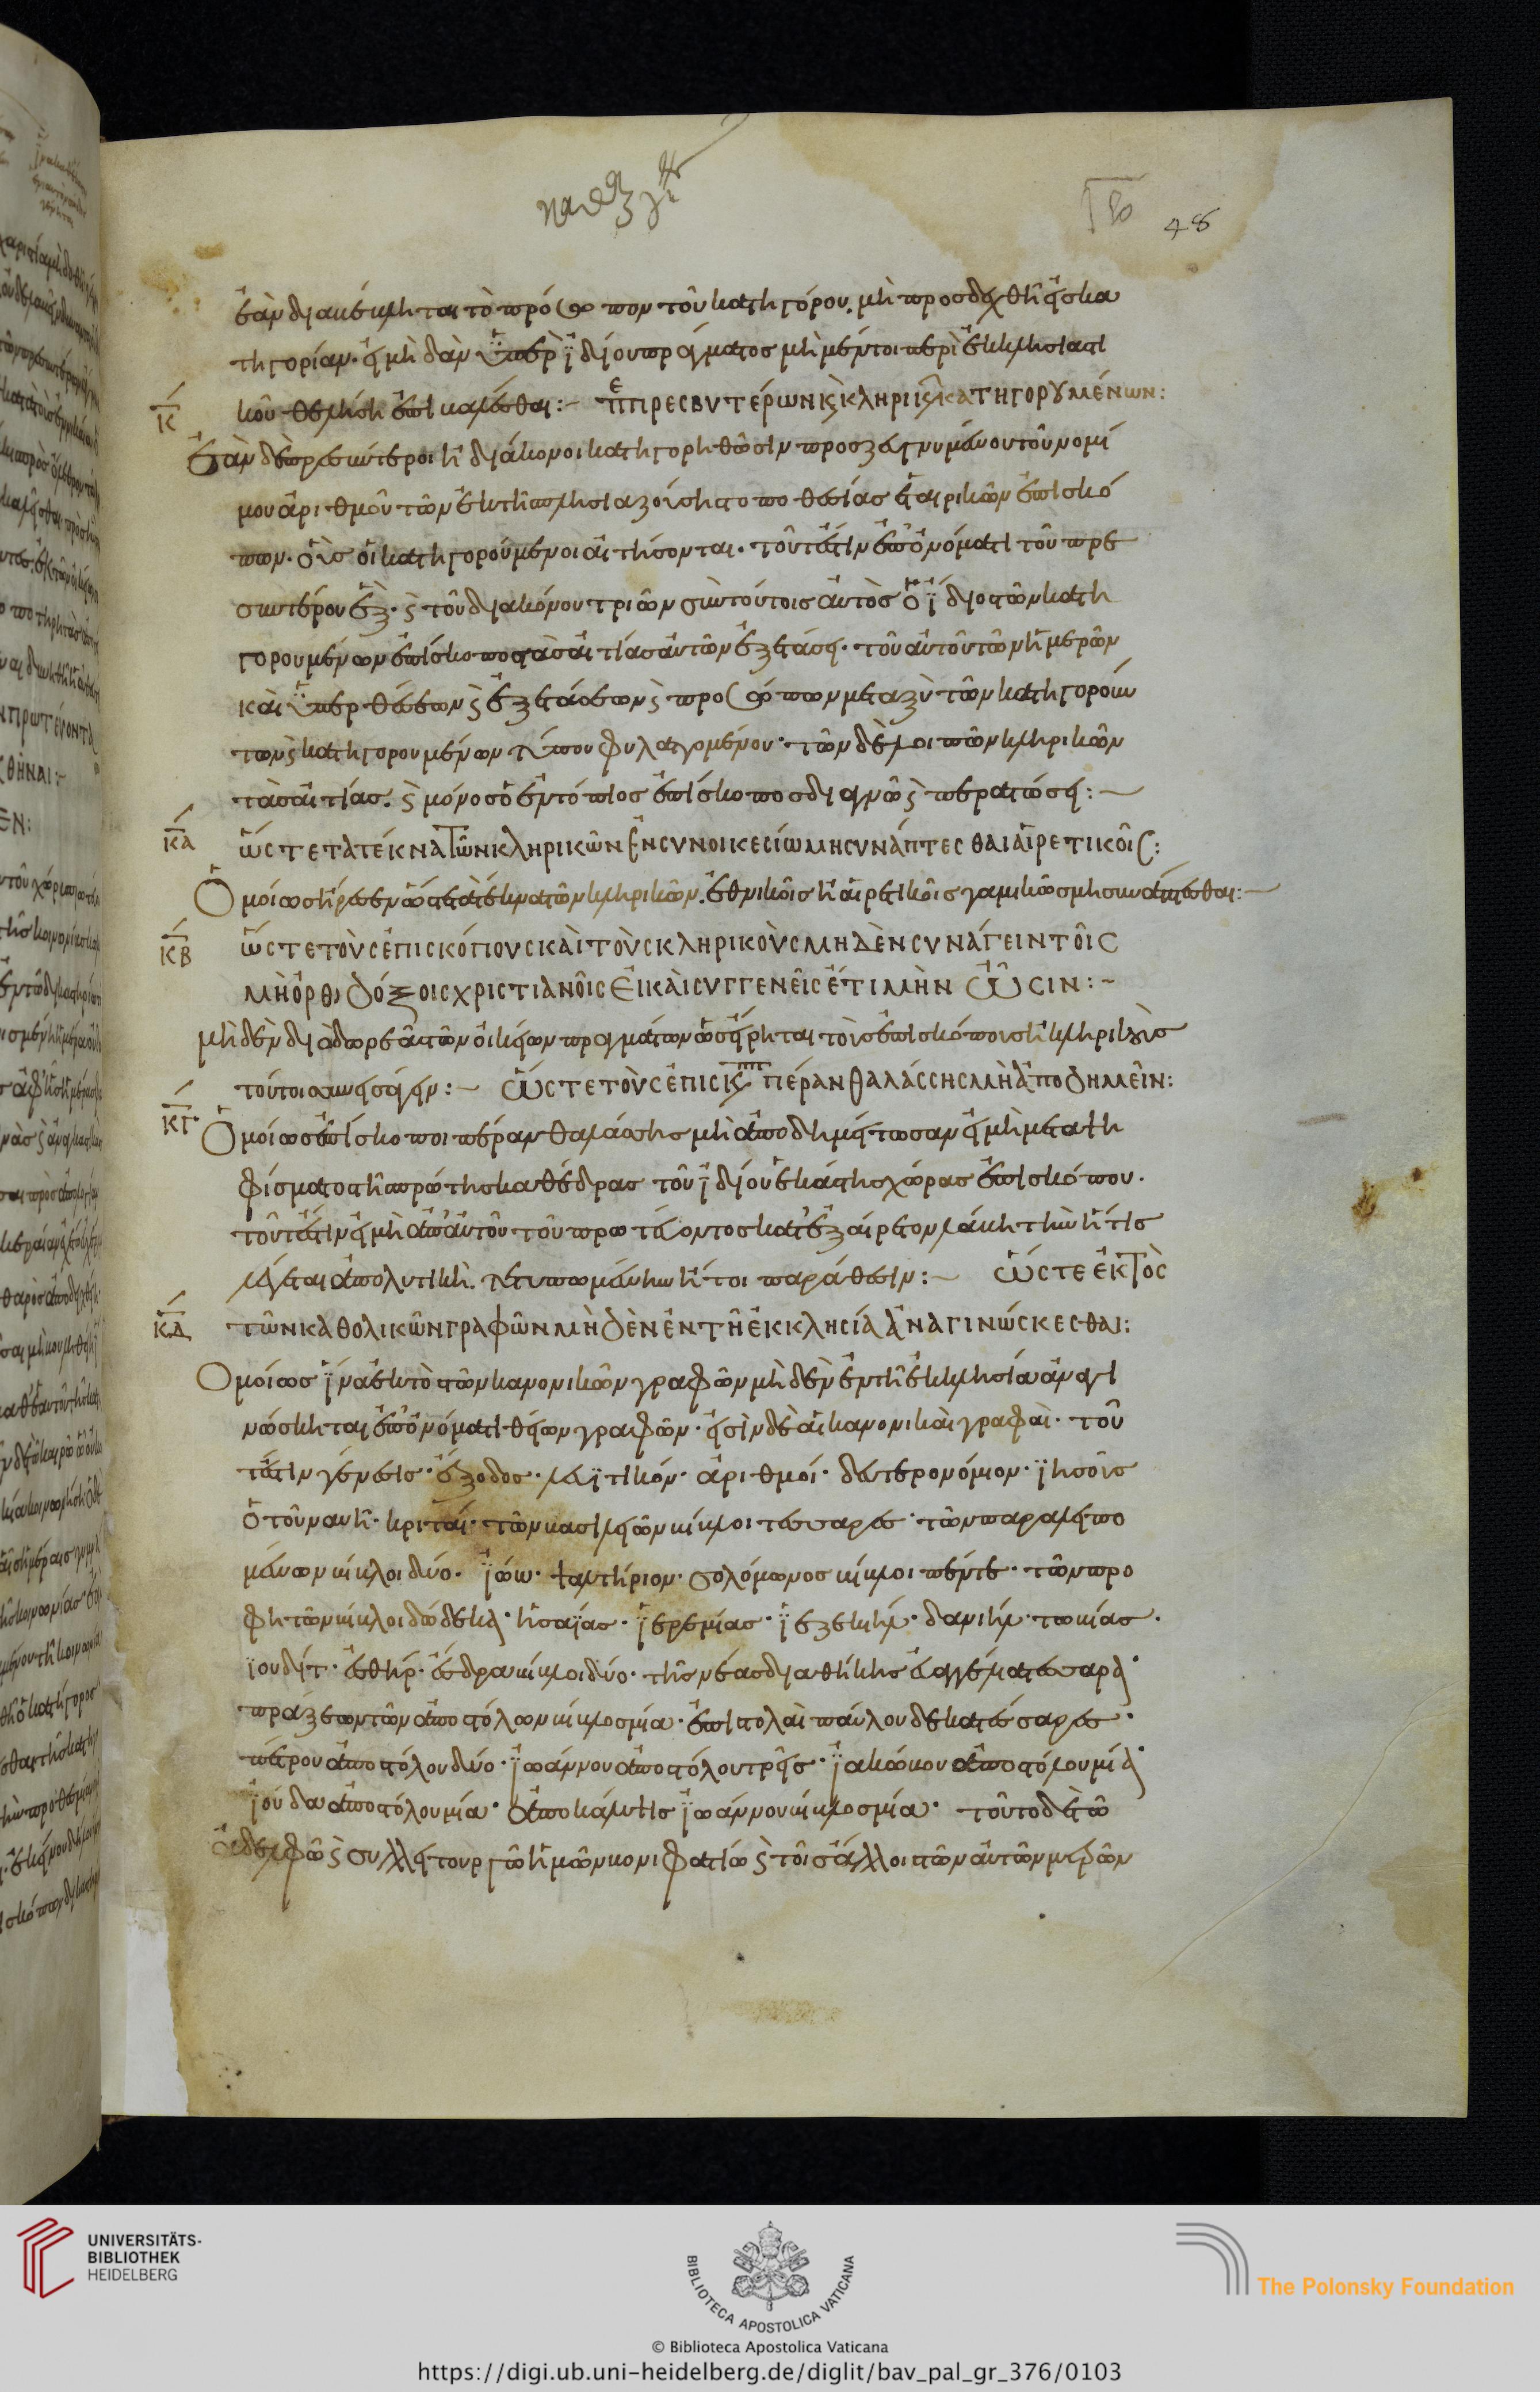 48
ἐὰν διαβέβληται τὸ πρόσωπον τοῦ κατηγόρου, μὴ προσδεχθῇ εἰς κα
τηγορίαν· εἰ μὴ δὰν ὑπὲρ ἰδίου πράγματος μὴ μέντοι περὶ ἐκκλησιαστι
Κ κοῦ θελήσῃ ἐπικαλέσθαι:– Πε πρεσβυτέρων κ κληρικ κατηγορουμένων:
Ἐὰν δὲ πρεσβύτεροι ἢ διάκονοι κατηγορηθῶσιν προσζευγνυμένου τοῦ νομί
μου ἀριθμοῦ τῶν ἐκ τῆ πλησιαζούση τοποθεσίας ἑταιρικῶν ἐπισκό
πων· οὓς οἱ κατηγορούμενοι αἰτήσονται· τουτέστιν ἐπ' ὀνόματι τοῦ πρε
σβυτέρου ἕξ· ϛ τοῦ διακόνου τριῶν σὺν τούτοις αὐτὸς ὁ ἴδιος τῶν κατη
γορουμένων ἐπίσκοπος τὰς αἰτίας αὐτῶν ἐξετάσει· τοῦ αὐτοῦ τῶν ἡμερῶν
καὶ ὑπερθέσεων ϛ ἐξετάσεων ϛ προσώπων μεταξὺ τῶν κατηγορούν
των ϛ κατηγορουμένων τύπου φυλαττομένου· τῶν δὲ λοιπῶν κληρικῶν
τὰς αἰτίας· ϛ μόνος ὁ ἐντόπιος ἐπίσκοπος διαγνῶ ϛ περατώσει:–
ΚΑ ὥστε τὰ τέκνα τῶν κληρικῶν ἐν συνοικεσίω μη συνάπτεσθαι αἱρετικοῖς:
Ὁμοίως ἤρεσεν ὥστε τὰ τέκνα τῶν κληρικῶν, ἐθνικοῖς ἢ αἱρετικοῖς γαμικῶς μη συνάπτεσθαι:–
ΚΒ ὥστε τοὺς ἐπισκόπους καὶ τοὺς κληρικοὺς μηδὲν συνάγειν τοῖς
μὴ ὀρθοδόξοις χριστιανοῖς εἰ καὶ συγγενεῖς ἔτι μὴν ὦσιν:–
μηδὲν διὰ δωρεᾶς τῶν οἰκείων πραγμάτων ὡς εἴρηται τοῖς ἐπισκόποις ἢ κληρικοῖς
τούτοις συνεισάγειν:– ὥστε τοὺς ἐπισκ πέραν θαλάσσης μὴ ἀποδημεῖν:
ΚΓ Ὁμοίως ἐπίσκοποι πέραν θαλάσσης μὴ ἀποδημείτωσαν εἰ μὴ μετὰ ψη
φίσματος τῆ πρώτης καθέδρας τοῦ ἰδίου ἑκάστης χώρας ἐπισκόπου·
τουτέστιν εἰ μὴ ἀπ' αὐτοῦ τοῦ πρωτεύοντος κατ' ἐξαίρετον λάβη τὴν ἥτις
λέγεται ἀπολυτικὴ, τετυπωμένην ἤτοι παράθεσιν:– ὥστε ἐκτὸς
ΚΔ τῶν καθολικῶν γραφῶν μηδὲν ἐν τῇ ἐκκλησία ἀναγινώσκεσθαι:
Ὁμοίως ἵνα ἐκτὸς τῶν κανονικῶν γραφῶν μηδὲν ἐν τῆ ἐκκλησία ἀναγι
νώσκηται ἐπ' ὀνόματι θείων γραφῶν· εἰσὶν δὲ αἱ κανονικαὶ γραφαὶ· του
τέστιν γένεσις· ἔξοδος· λευϊτικόν· ἀριθμοί· δευτερονόμιον· ἰησοῦς
ὁ τοῦ ναυῆ· κριταί· τῶν βασιλειῶν βίβλοι τέσσαρες· τῶν παραλειπο
μένων βίβλοι δύο· ἰώβ· ψαλτήριον· σολόμωνος βίβλοι πέντε· τῶν προ
φητῶν βίβλοι δώδεκα· ἡσαΐας· ἱερεμίας· ἰεζεκιήλ· δανιήλ· τωβίας·
ἰουδίτ· ἐσθήρ· ἔσδρα βίβλοι δύο· τῆς νέας διαθήκης εὐαγγέλια τέσσαρα·
πράξεων τῶν ἀποστόλων βίβλος μία· ἐπιστολαὶ παύλου δεκατέσσαρες·
πέτρου ἀποστόλου δύο· ἰωάννου ἀποστόλου τρεῖς· ἰακώβου ἀποστόλου μία·
ἰούδα ἀποστόλου μία· ἀποκάλυψις ἰωάννου βίβλος μία· τοῦτο δὲ τῶ
ἀδελφῶ ϛ συλλειτουργῶ ἡμῶν βονιφατίω ϛ τοῖς ἄλλοις τῶν αὐτῶν μερῶν
UNIVERSITÄTS-
BIBLIOTHEK
HEIDELBERG
BIBLIOTECA APOSTOLICA VATICANA
The Polonsky Foundation
© Biblioteca Apostolica Vaticana
https://digi.ub.uni-heidelberg.de/diglit/bav_pal_gr_376/0103